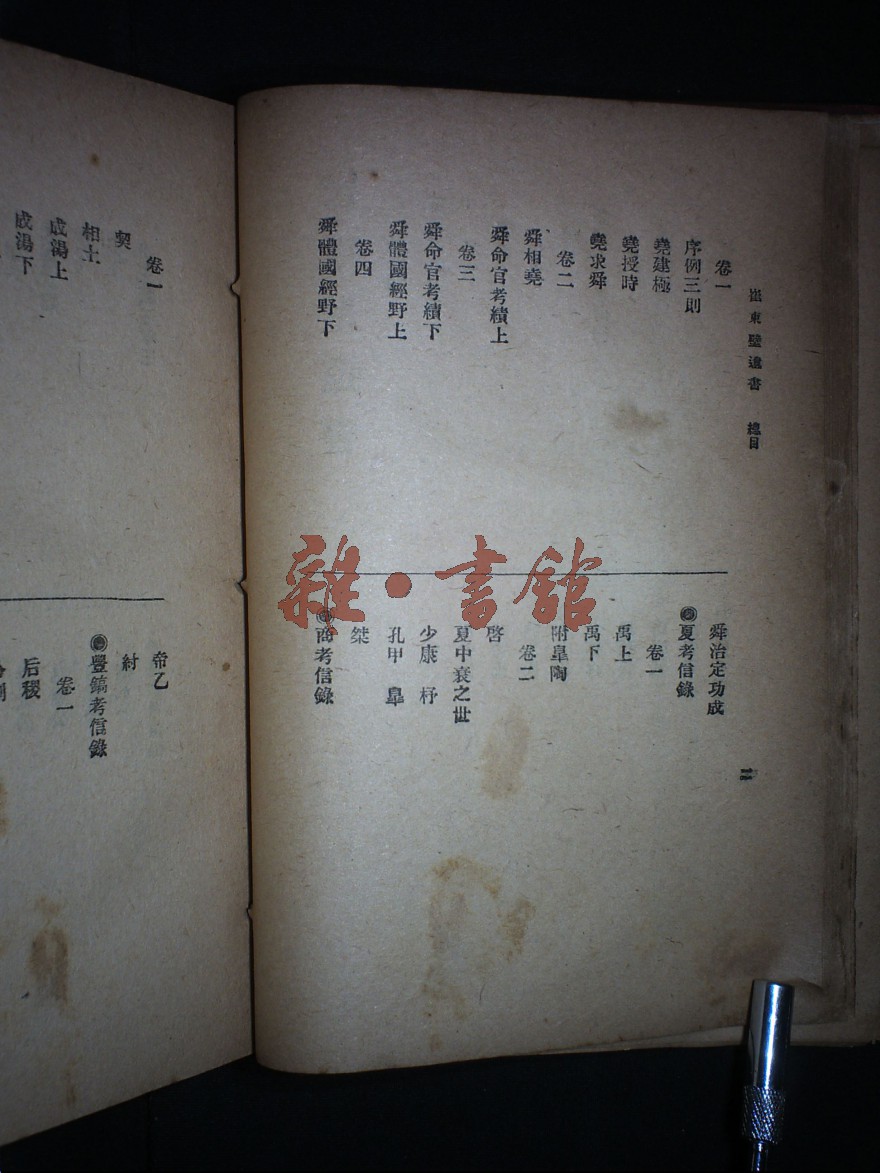 崔東壁遺書 總目
二
卷一
序例三則
堯建極
堯授時
堯求舜
卷二
舜相堯
舜命官考績上
卷三
舜命官考績下
舜體國經野上
卷四
舜體國經野下
舜治定功成
夏考信錄
卷一
禹上
禹下
附皐陶
卷二
啓
夏中衰之世
少康 杼
孔甲 皐
桀
商考信錄
卷一
契
相土
成湯上
成湯下
帝乙
紂
豐鎬考信錄
卷一
后稷
雜·書館